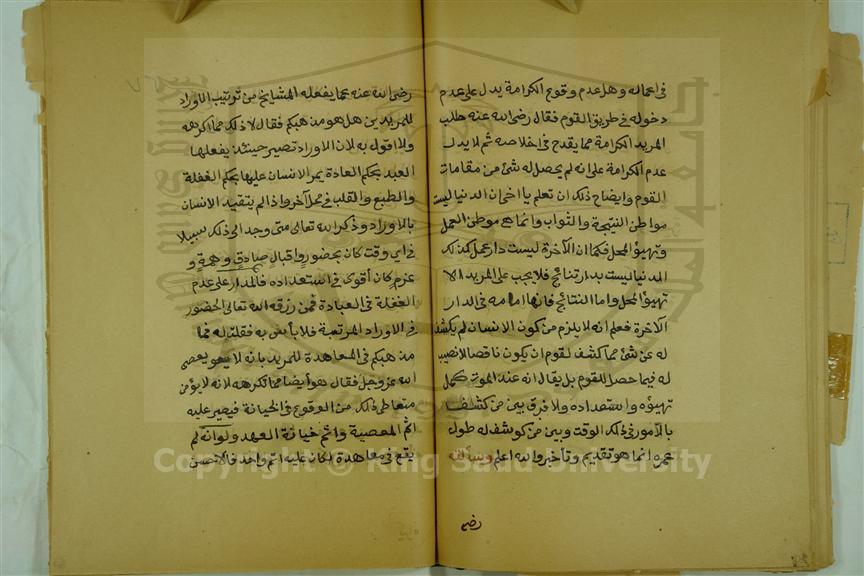 في اعماله وهل عدم وقوع الكرامة يدل على عدم
دخوله في طريق القوم فقال رضى الله عنه طلب
المريد الكرامة مما يقدح في اخلاصه ثم لا يدل
عدم الكرامة على انه لم يحصل له شئ من مقامات
القوم وايضاح ذلك ان تعلم يا اخى ان الدنيا ليست
مواطن النتيجة والثواب وانما هى موطن العمل
وتهيؤ المحل فكما ان الآخرة ليست دار عمل كذلك
الدنيا ليست بدار نتائج فلا يجب على المريد الا
تهيؤ المحل واما النتائج فانها امامه في الدار
الآخرة فعلم انه لا يلزم من كون الانسان لم يكشف
له عن شئ مما كشف لقوم ان يكون ناقصا لا نصيب
له فيما حصل للقوم بل يقال انه عند الموت كمل
تهيؤه واستعداده ولا فرق بين من كشف
بالأمور في ذلك الوقت وبين من كوشف له طول
عمره انما هو تقديم وتأخير والله اعلم وسألته
رضى
رضى الله عنه عما يفعله المشايخ من ترتيب الاوراد
للمريدين هل هو مذهبكم فقال لا ذلك مما اكرهه
ولا اقول به لان الاوراد تصير حينئذ يفعلها
العبد بحكم العادة يمر الانسان عليها بحكم الغفلة
والطبع والقلب في محل آخر واذا لم يتقيد الانسان
بالاوراد وذكر الله تعالى متى وجد الى ذلك سبيلا
في اى وقت كان بحضور واقبال صادق وهمة و
عزم كان أقوى في استعداده فالمدار على عدم
الغفلة في العبادة فمن رزقه الله تعالى الحضور
في الاوراد المرتبة فلا بأس به فقلت له فما
مذهبكم في المعاهدة للمريد بانه لا يعود يعصى
الله عز وجل فقال هو أيضا مما نكرهه لانه لا يؤمن
متعاطى ذلك من الوقوع في الخيانة فيصير عليه
اثم المعصية واثم خيانة العهد ولو انه لم
يقع في معاهدة لكان عليه اثم واحد فالاحسن
Copyright © King Saud University